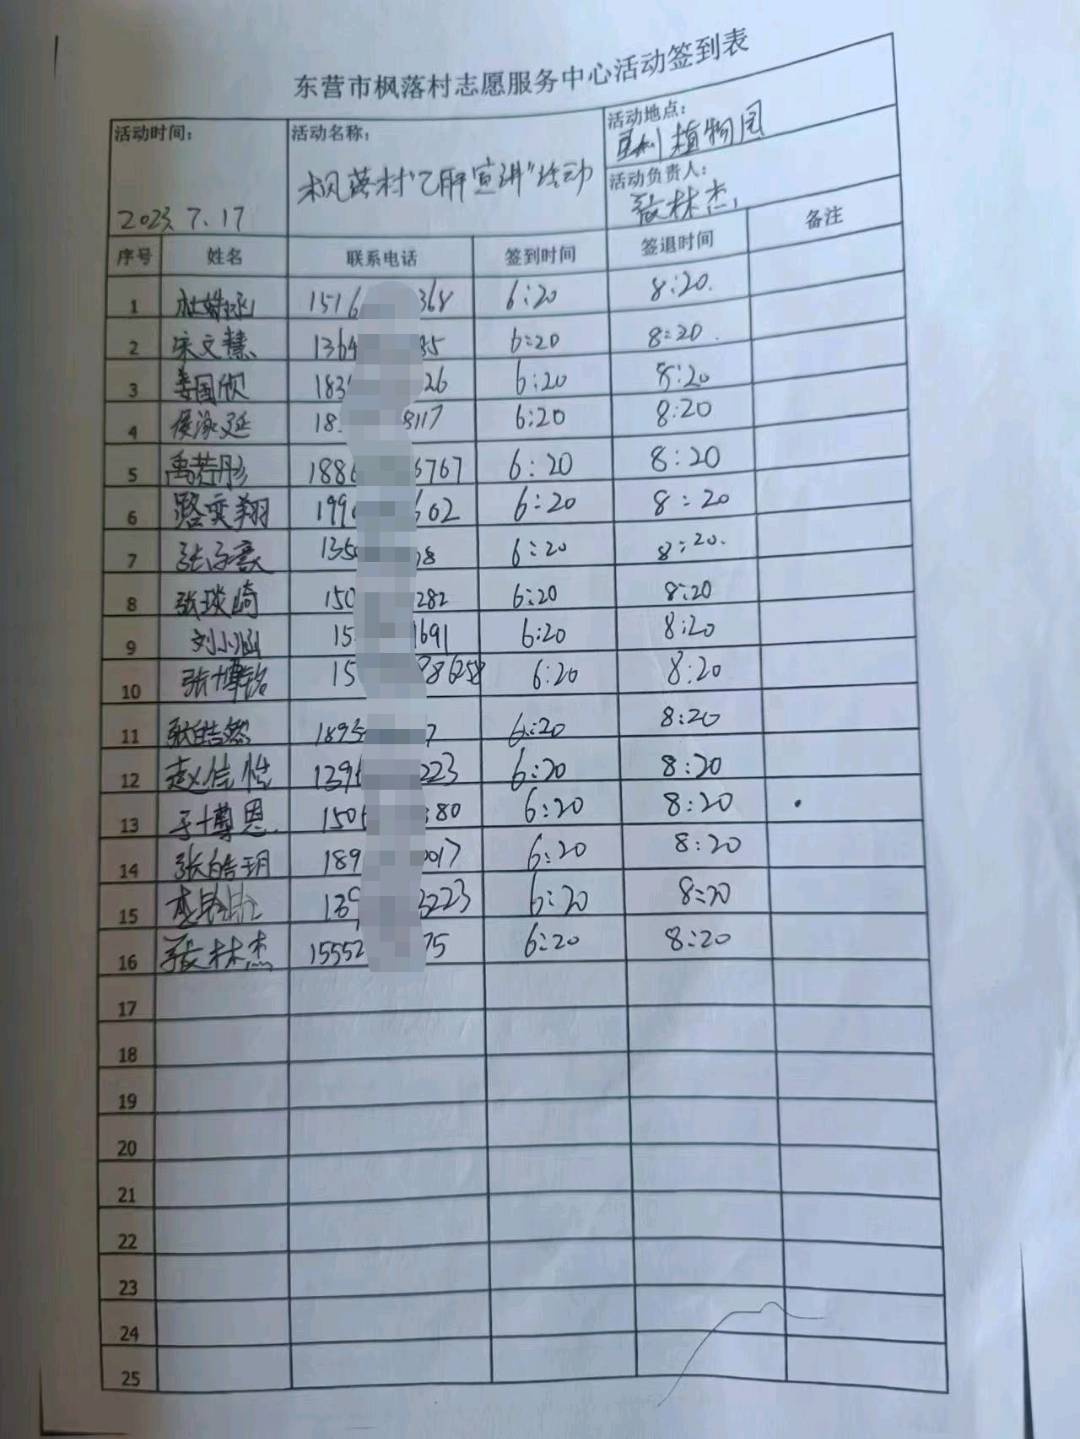 东营市枫落村志愿服务中心活动签到表
活动时间: 活动名称: 活动地点:
植物园
枫落村"乙肝宣讲"活动
活动负责人:
2023.7.17 张林杰
序号 姓名 联系电话 签到时间 签退时间 备注
1 1516 368 6:20 8:20.
2 宋文慧 1364 35 6:20 8:20.
3 姜国欣 183 26 6:20 8:20
4 18 8117 6:20 8:20
5 禹若彤 1886 6767 6:20 8:20
6 路奕翔 199 602 6:20 8:20
7 张子豪 135 38 6:20 8:20.
8 张琰崎 150 282 6:20 8:20
9 刘小涵 15 1691 6:20 8:20
10 张博铭 15 886258 6:20 8:20
11 张皓然 1893 7 6:20 8:20
12 赵信恺 1396 223 6:20 8:20
13 于博恩. 150 80 6:20 8:20
14 张皓玥 189 0017 6:20 8:20
15 139 3223 6:20 8:20
16 张林杰 15552 75 6:20 8:20
17
18
19
20
21
22
23
24
25